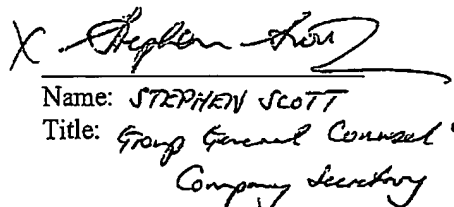 X. Stephen Scott
Name: STEPHEN SCOTT
Title: Group General Counsel
Company Secretary